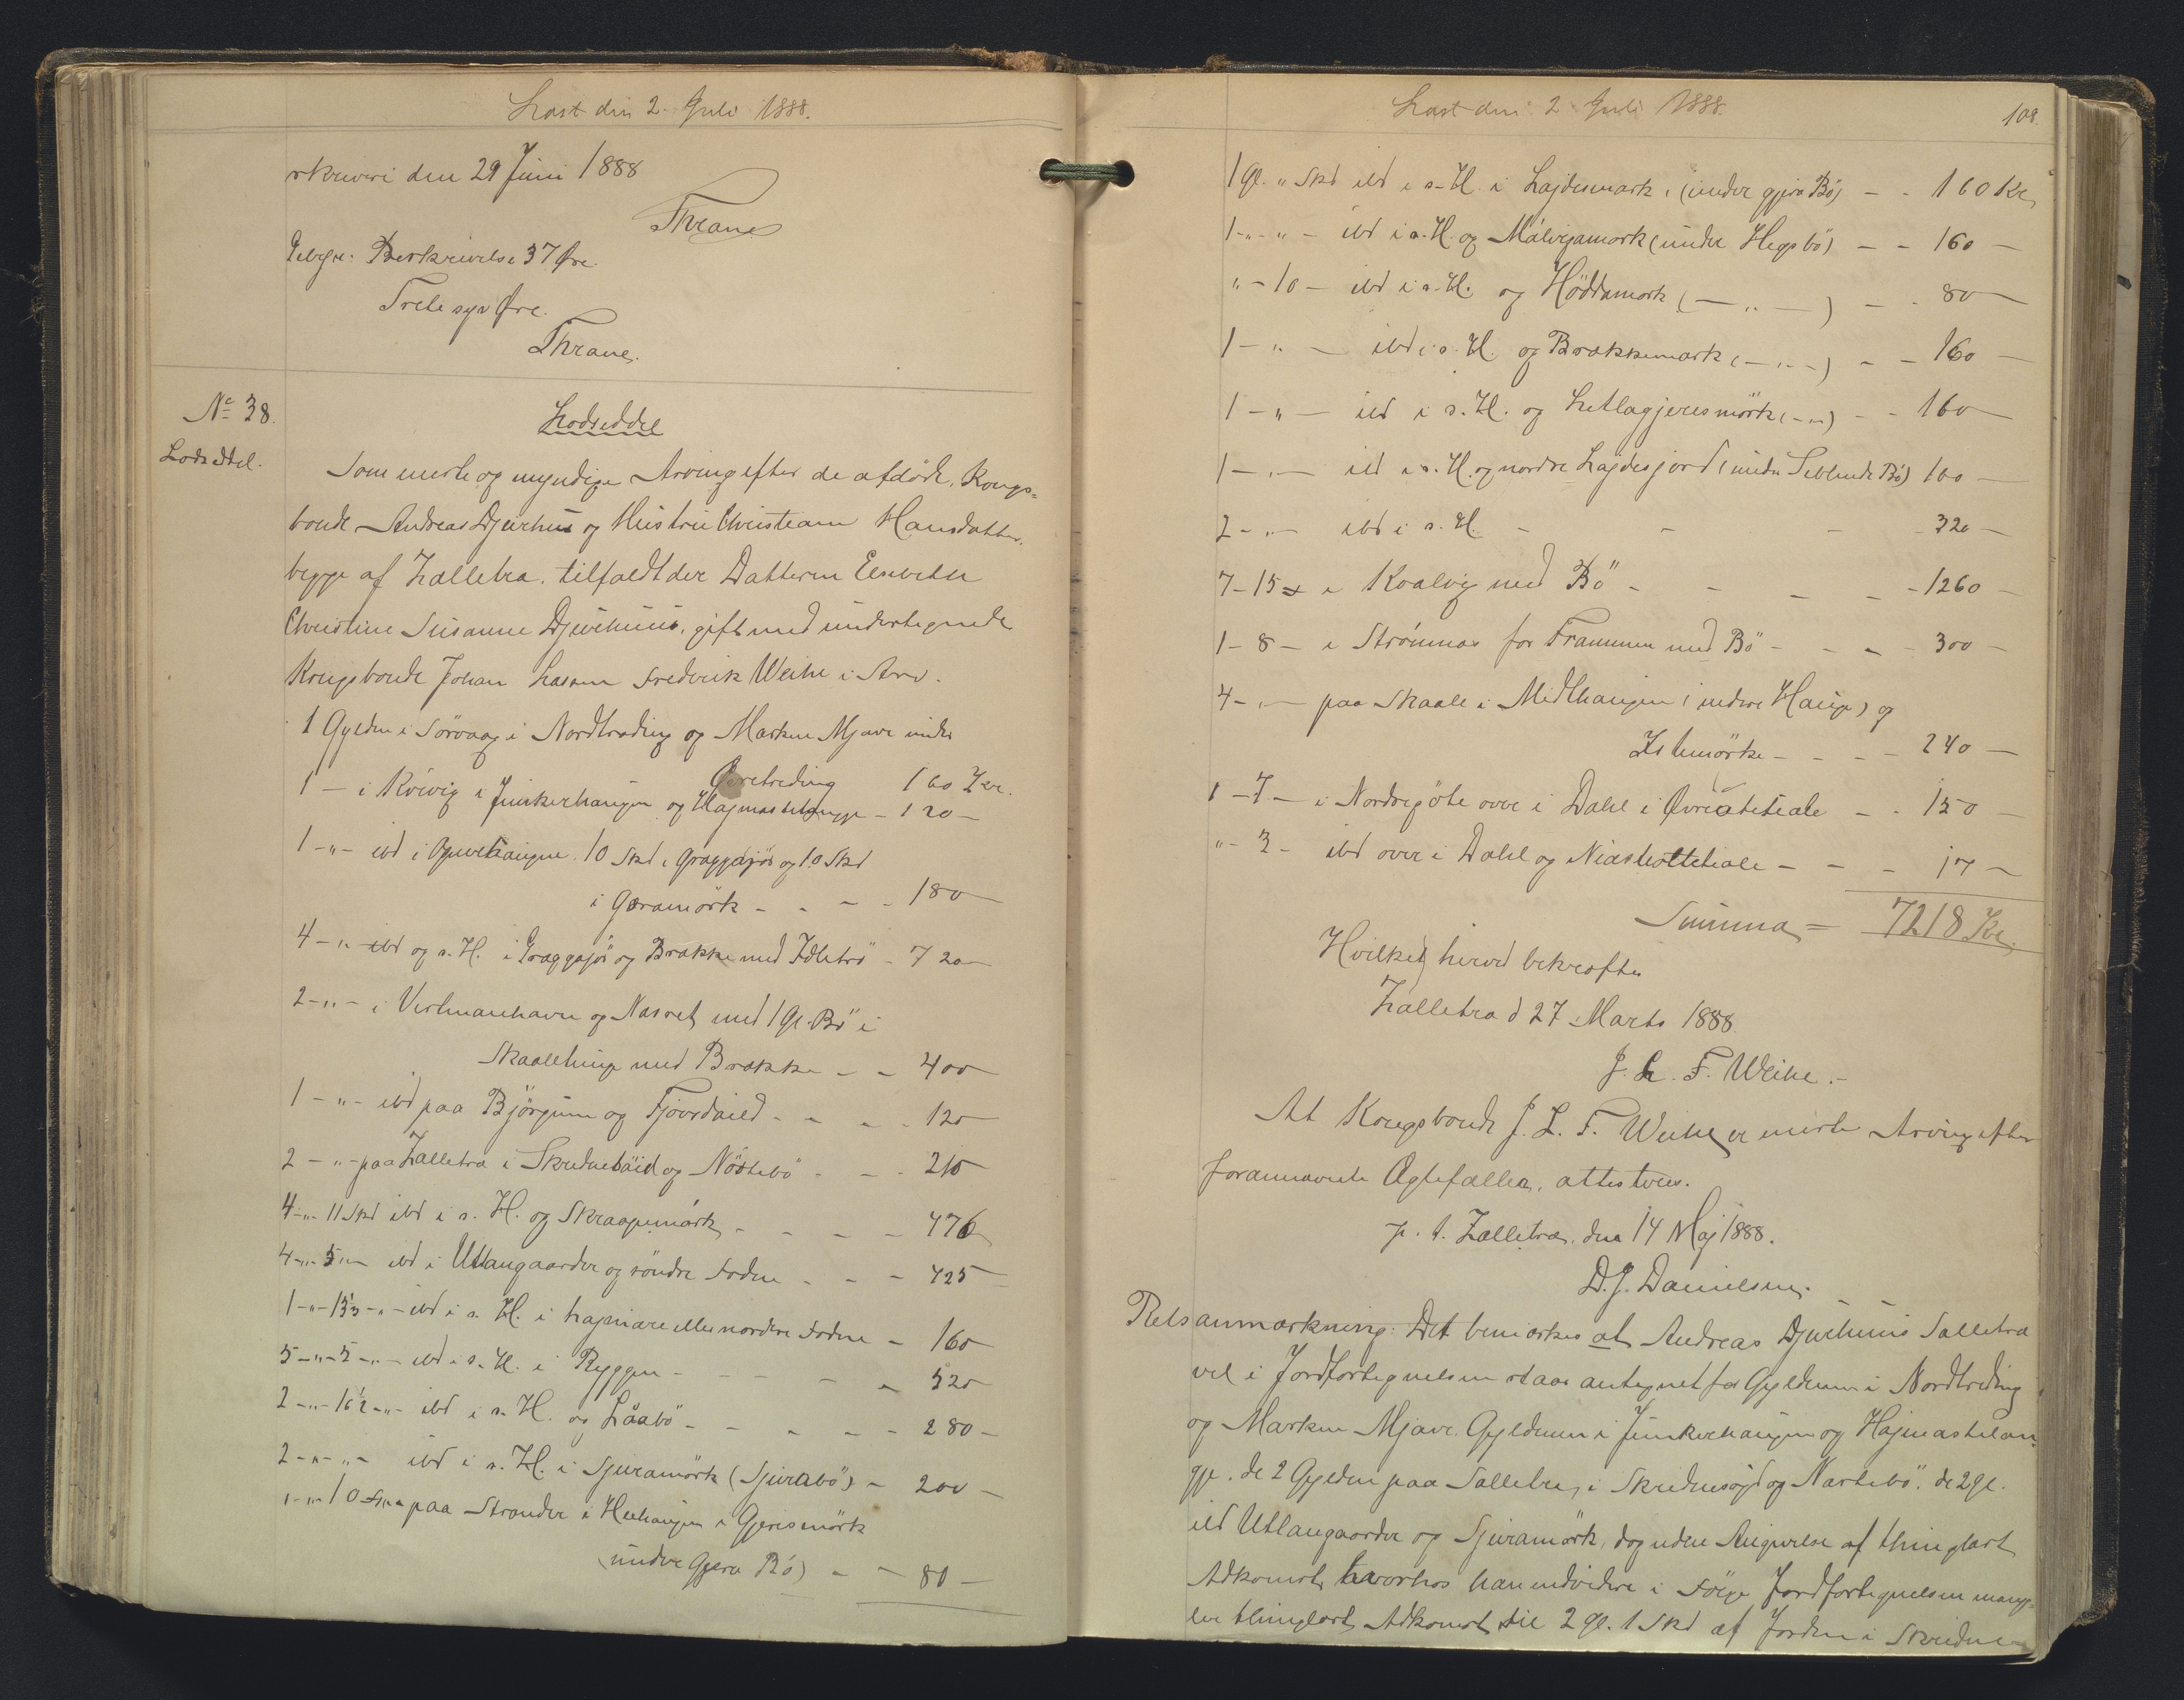 Læst den 2. Juli 1888.
skriveri den 29 Juni 1888
Thrane
Gebyr: Beskrivelse 37 Øre.
Treti syv Øre.
Thrane.
No 38.
Lodseddel.
Lodseddel
Som eneste og myndige Arving efter de afdøde, Kongs-
bonde Andreas Djurhuus og Hustru Christiane Hansdatter,
begge af Zælletræ, tilfaldt der Datteren Elsebeth
Christine Susanne Djurhuus, gift med undertegnede
Kongsbonde Johan Lassen Frederik Weihe i Arv.
1 Gylden i Sörvaag i Nordtræding og Marken Mjave under
Øvretreding 160 Kr.
1 — i Kvivig i Junkerhaugen og Hagmastelangge — 120 —
1 - „ - ibd i Ognerhaugen 10 Skd i Graggasjös og 10 Skd
i Gæramörk - - - - 180 —
4 - „ - ibd og s. H. i Graggasjös og Brække med Idletrö - 720 —
2 - „ - i Vestmanhavn og Næsret med 1 Gl. Bö i
Skaalelunge med Brække - - 400 —
1 - „ - ibd paa Björgum og Fjovrdaied - - - 120 —
2 - „ - paa Zælletræ i Skridnesöid og Nöstebö - - - 210 —
4 - „ - 11 Skd ibd i s. H. og Skraapumörk - - - - 476
4 - „ - 5 „ - ibd i Utlangaarder og söndre Fodne - - - 425 —
1 - „ - 15⅓ - „ - ibd i s. H. i hagmære eller nordere Fodne - 160 —
5 - „ - 5 - „ - ibd i s. H. i Ryggen - - - - - 520 —
2 - „ - 16½ - „ - ibd i s. H. og Låabö - - - - - 280 —
2 - „ - „ - ibd i s. H. i Sjuramörk (Sjurabö) - 200 —
„ - „ - 10 „ - paa Strænder i Heehaugen i Gjerismörk
(under Gjera Bö) - - 80 —
Læst den 2. Juli 1888.
108.
1 Gl. „ Skd ibd i s. H. i Lajdesmark, (under gjera Bö) - - 160 Kr
1 - „ - „ - ibd i s. H. og Målvejamörk (under Hegsbö) - - 160 —
„ - 10 - ibd i s. H. og Höddamörk ( — „ — ) - - 80 —
1 - „ - ibd i s. H. og Brækkemark ( — „ — ) - - 160 —
1 - „ - ibd i s. H. og Litlagjeresmörk ( - „ - ) - - 160 —
1 - „ - ibd i s. H. og nordre Lajdesjord (under Bö) 160 —
2 - „ - ibd i s. H. - - - - 320 —
7 - 15 - i Kvalvig med Bö - - - - 1260 —
1 - 8 - i Strömnæs for Frammen med Bö - - - - 300 —
4 - „ - paa Skaale i Midthaugen (indere Hauge) og
Istemörke - - - - 240 —
1 - 7 - i Nordregöte over i Dahl i Øvreatetiale - - 150 —
„ - 3 - ibd over i Dahl og Niastatteteale - - - 17 —
Summa = 7218 Kr.
Hvilket herved bekræftes
Zælletræ d 27 Marts 1888
J. L. F. Weihe.-
At Kongsbonde J. L. F. Weihe er eneste Arving efter
forannævnte Ægtefæller, attesteres.
p. t. Zælletræ, den 14 Maj 1888.
D. J. Danielsen.
Retsanmærkning: Det bemærkes at Andreas Djurhuus Sælletræ
vel i Jordfortegnelsen staar antegnet for Gyldenen i Nordtreding
og Marken Mjave, Gyldenen i Junkerhaugen og Hajmastelan-
gge, de 2 Gylden paa Sælletræ, i Skridnesöjd og Nastebö, de 2 gl.
ibd Utlangaarder og Sjuramörk, dog uden Angivelse af thinglæst
Adkomst, hvorhos han endvidere i Følge Jordfortegnelsen mang-
ler thinglæst Adkomst til 2 gl. 1 Skd af Jorden i Skridne-